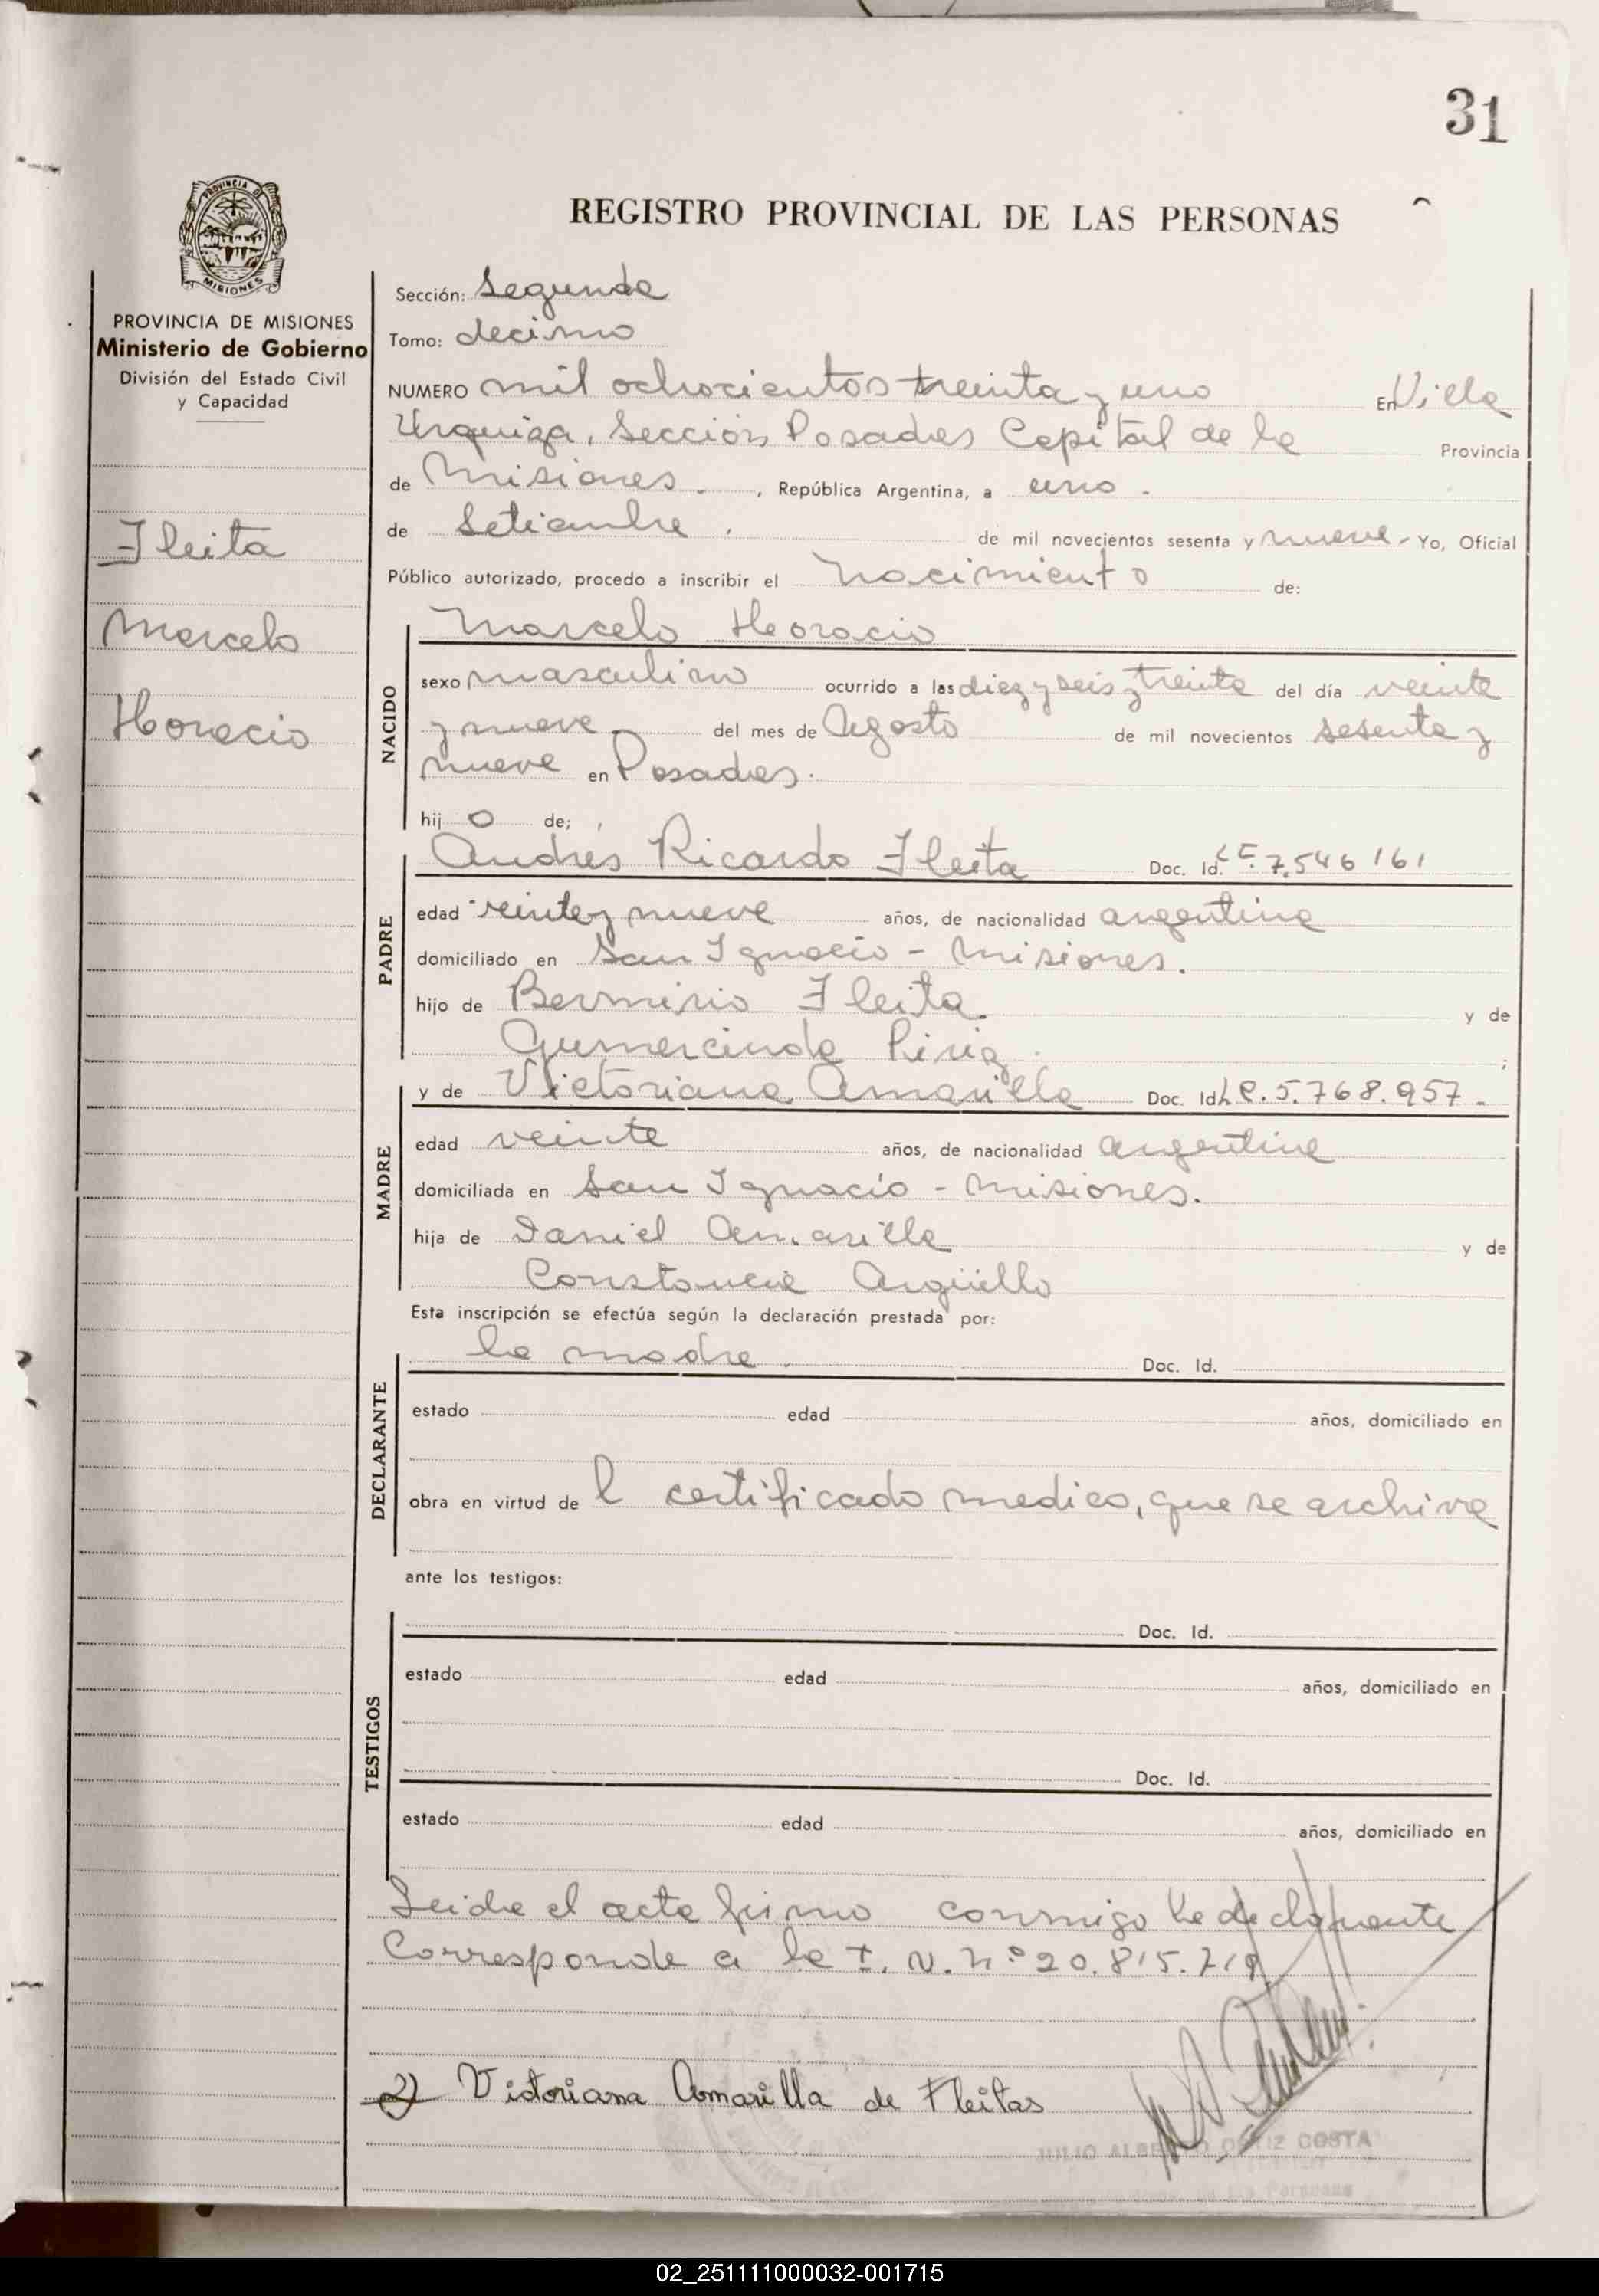 31
PROVINCIA DE
MISIONES
REGISTRO PROVINCIAL DE LAS PERSONAS
PROVINCIA DE MISIONES
Ministerio de Gobierno
División del Estado Civil
y Capacidad
Fleita
Marcelo
Horacio
Sección: Segunda
Tomo: decimo
NUMERO mil ochocientos treinta y uno En Villa
Urquiza, Sección Posadas Capital de la Provincia
de Misiones , República Argentina, a uno
de Setiembre de mil novecientos sesenta y nueve Yo, Oficial
Público autorizado, procedo a inscribir el Nacimiento de:
NACIDO
Marcelo Horacio
sexo masculino ocurrido a las diez y seis y treinta del día veinte
y nueve del mes de Agosto de mil novecientos sesenta y
nueve en Posadas.
hij o de;
PADRE
Andrés Ricardo Fleita Doc. Id. L.E. 7.546 161
edad veinte y nueve años, de nacionalidad argentina
domiciliado en San Ignacio - Misiones.
hijo de Bermirio Fleita y de
Gumercinda Piriz ;
MADRE
y de Victoriana Amarilla Doc. Id. L.C. 5.768.957.
edad veinte años, de nacionalidad argentina
domiciliada en San Ignacio - Misiones.
hija de Daniel Amarilla y de
Constancia Argüello
Esta inscripción se efectúa según la declaración prestada por:
DECLARANTE
la madre Doc. Id.
estado edad años, domiciliado en
obra en virtud de l certificado medico, que se archiva
ante los testigos:
TESTIGOS
Doc. Id.
estado edad años, domiciliado en
Doc. Id.
estado edad años, domiciliado en
Leida el acta firmo conmigo la declarante
Corresponde a la I. N. Nº 20.815.719
2) Victoriana Amarilla de Fleitas
JULIO ALBERTO ORTIZ COSTA
02_251111000032-001715